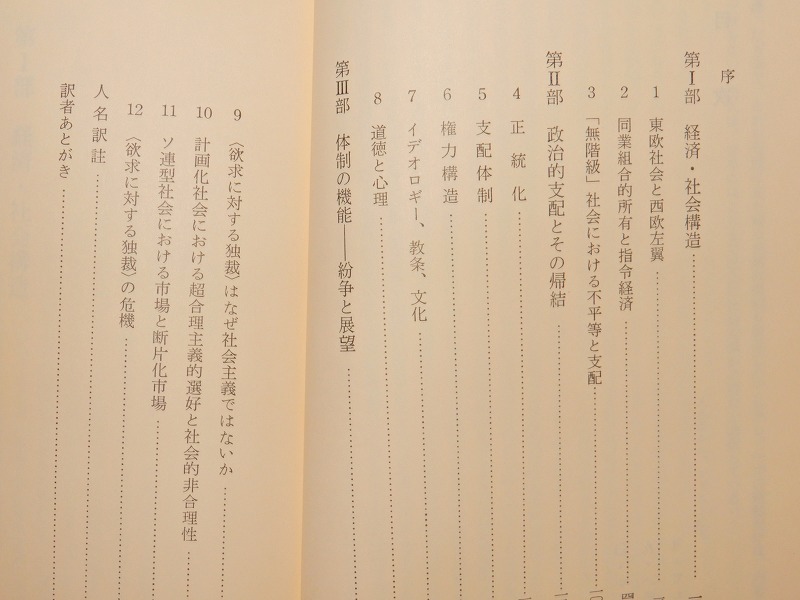 序
第Ⅰ部 経済・社会構造
1 東欧社会と西欧左翼
2 同業組合的所有と指令経済
3 「無階級」社会における不平等と支配
第Ⅱ部 政治的支配とその帰結
4 正統化
5 支配体制
6 権力構造
7 イデオロギー、教条、文化
8 道徳と心理
第Ⅲ部 体制の機能——紛争と展望
9 〈欲求に対する独裁〉はなぜ社会主義ではないか
10 計画化社会における超合理主義的選好と社会的非合理性
11 ソ連型社会における市場と断片化市場
12 〈欲求に対する独裁〉の危機
人名訳註
訳者あとがき